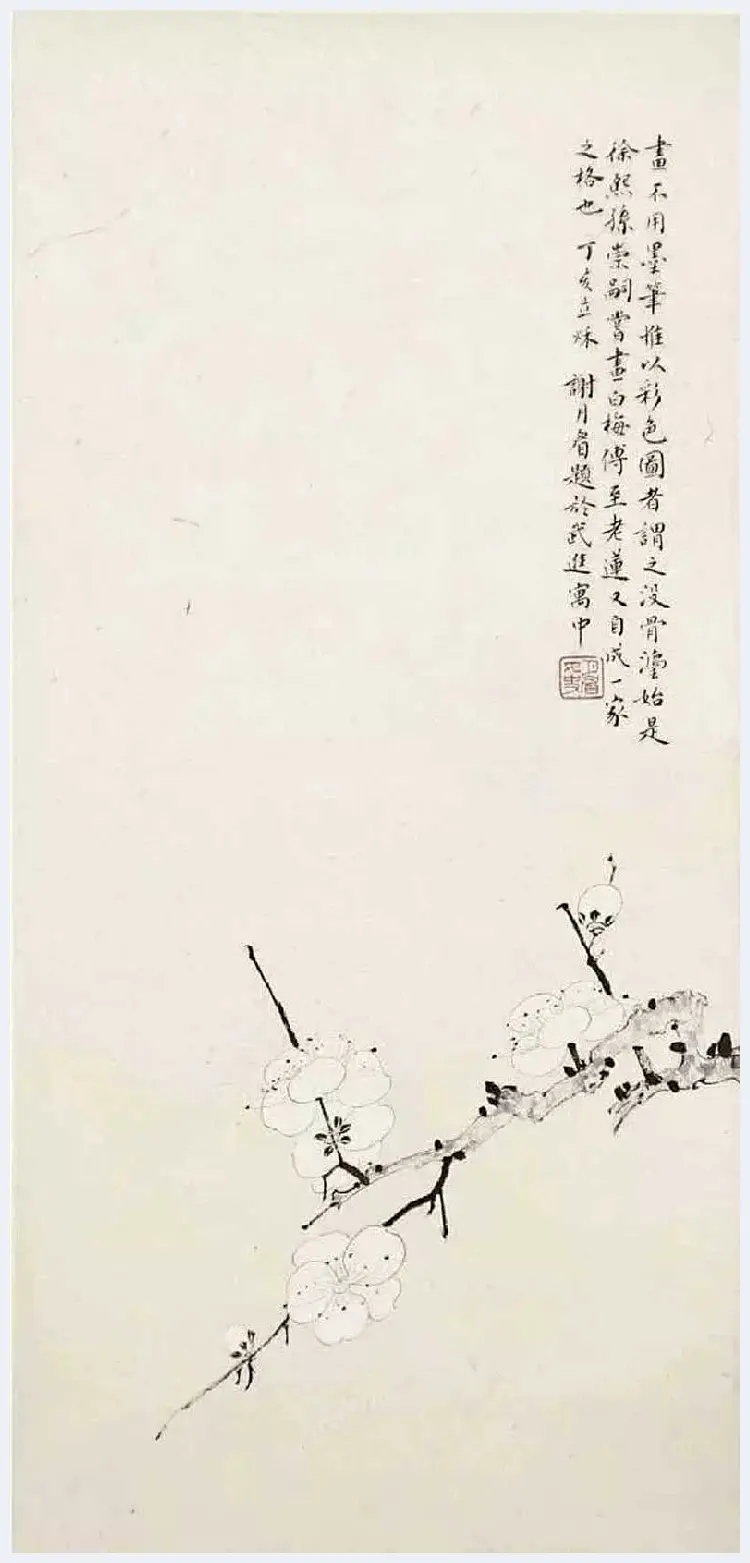 畫不用墨筆推以彩色圖者謂之没骨灋始是
徐熙孫崇嗣嘗畫白梅傅至老蓮又自成一家
之格也 丁亥立秌 謝月眉題於武進寓中